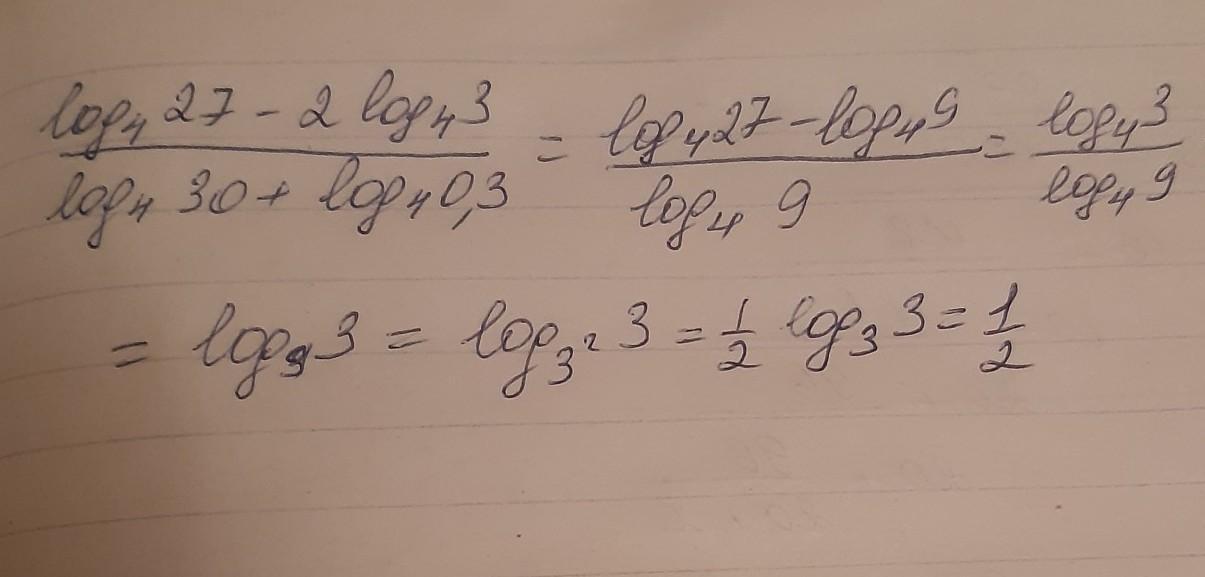 (log₄ 27 - 2 log₄ 3)/(log₄ 30 + log₄ 0,3) = (log₄ 27 - log₄ 9)/(log₄ 9) = (log₄ 3)/(log₄ 9)
= log₉ 3 = log₃² 3 = 1/2 log₃ 3 = 1/2